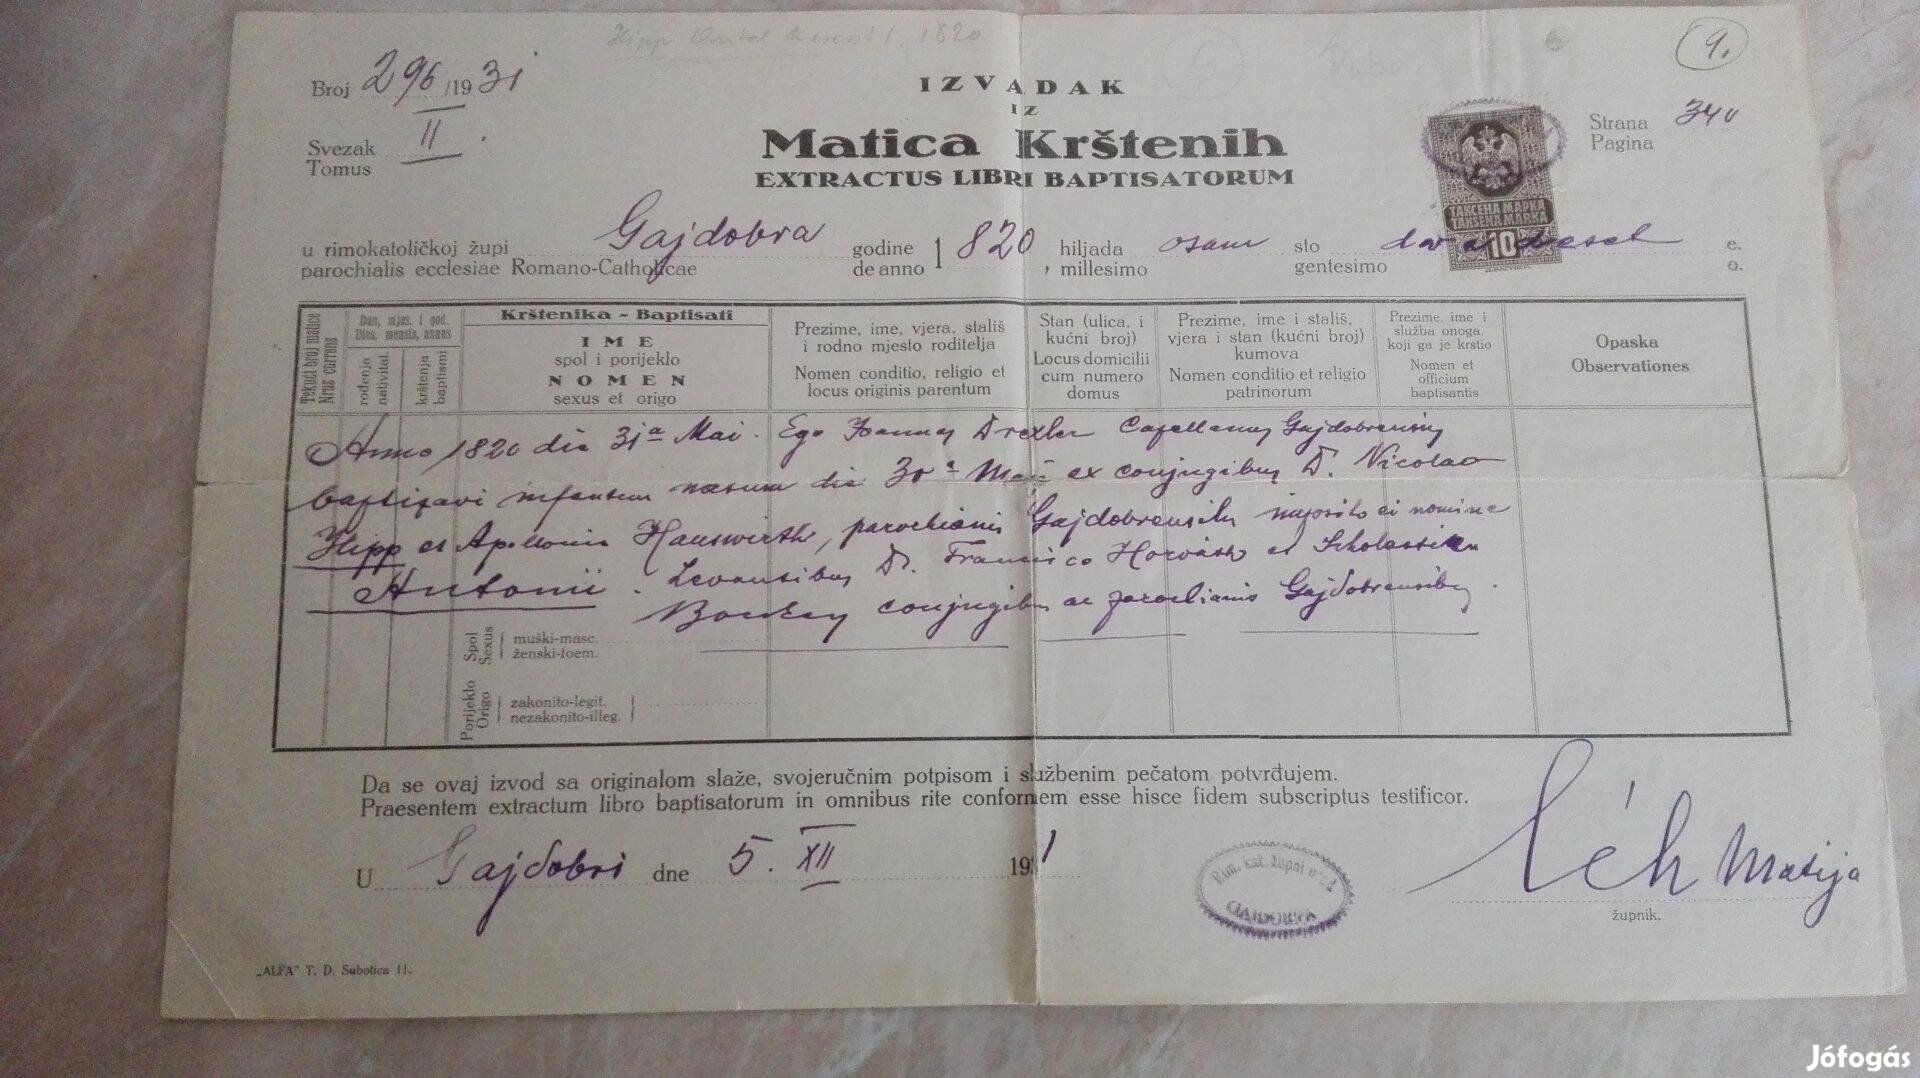 1820
9.
Broj 296/1931
IZVADAK
IZ
Matica Krštenih
EXTRACTUS LIBRI BAPTISATORUM
Svezak II.
Tomus
Strana 340
Pagina
ТАКСЕНА МАРКА
TAKSENA MARKA
10
u rimokatoličkoj župi Gajdobra godine 1820 hiljada osam sto dvadeset e.
parochialis ecclesiae Romano-Catholicae de anno , millesimo gentesimo o.
Tekući broj matice
Nrus currens
Dan, mjes. i god.
Dies, mensis, annus
rođenja
nativitat.
krštenja
baptismi
Krštenika - Baptisati
IME
spol i porijeklo
NOMEN
sexus et origo
Prezime, ime, vjera, stališ
i rodno mjesto roditelja
Nomen conditio, religio et
locus originis parentum
Stan (ulica, i
kućni broj)
Locus domicilii
cum numero
domus
Prezime, ime i stališ,
vjera i stan (kućni broj)
kumova
Nomen conditio et religio
patrinorum
Prezime, ime i
služba onoga,
koji ga je krstio
Nomen et
officium
baptisantis
Opaska
Observationes
Anno 1820 die 31a Mai. Ego Joannes Drexler Capellanus Gajdobrensis
baptizavi infantem natum die 30a Mai ex conjugibus D. Nicolao
Hipp et Apollonia Hauswirth, parochianis Gajdobrensibus imposito ei nomine
Antonii. Levantibus D. Francisco Horváth et Scholastica
conjugibus ac parochianis Gajdobrensibus.
Spol
Sexus
muški-masc.
ženski-foem.
Porijeklo
Origo
zakonito-legit.
nezakonito-illeg.
Da se ovaj izvod sa originalom slaže, svojeručnim potpisom i službenim pečatom potvrđujem.
Praesentem extractum libro baptisatorum in omnibus rite conformem esse hisce fidem subscriptus testificor.
U Gajdobri dne 5. XII 1931
Rim. kat. župni ured
GAJDOBRA
Léh Matija
župnik.
„ALFA" T. D. Subotica 11.
Jófogás